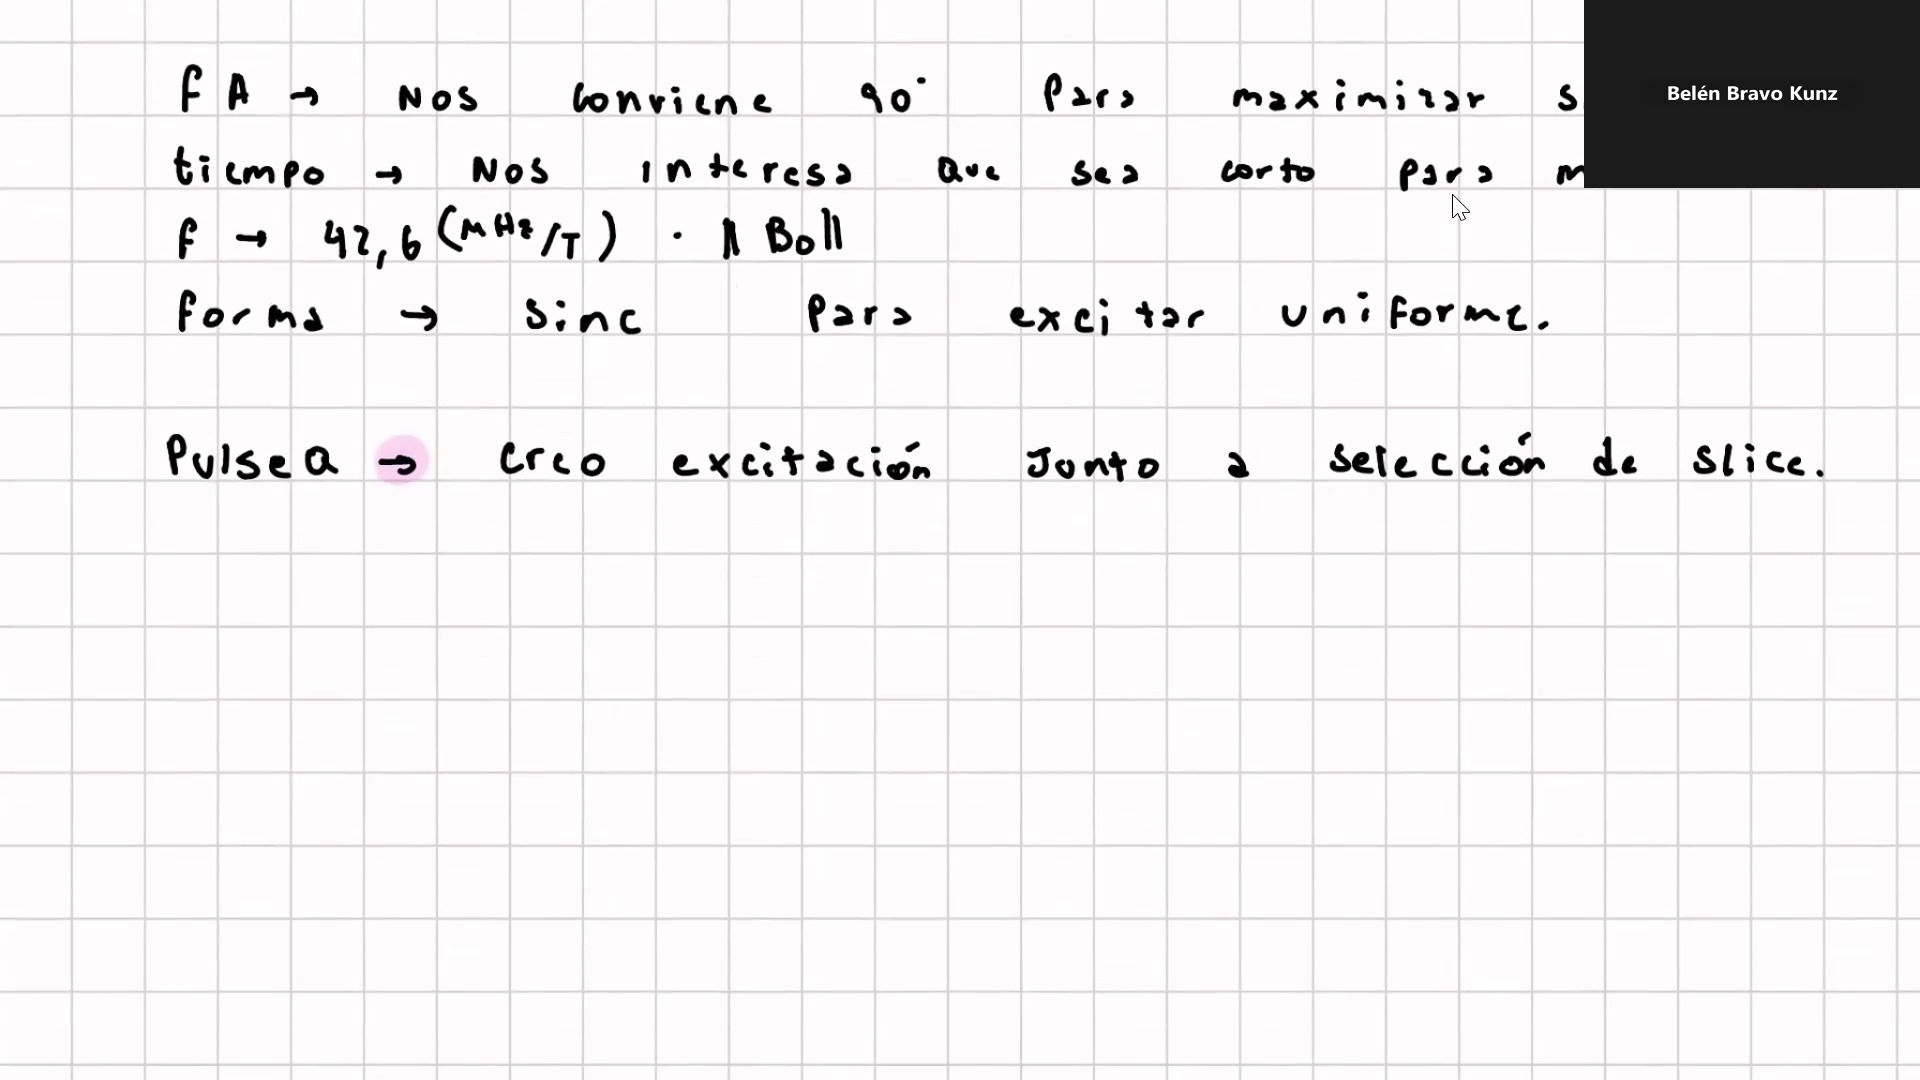 FA → Nos conviene 90° para maximizar s
Belén Bravo Kunz
tiempo → Nos interesa que sea corto para m
f → 42,6 (MHz/T) · ||Bo||
forma → sinc para excitar uniforme.
PulseQ → creo excitación junto a selección de slice.